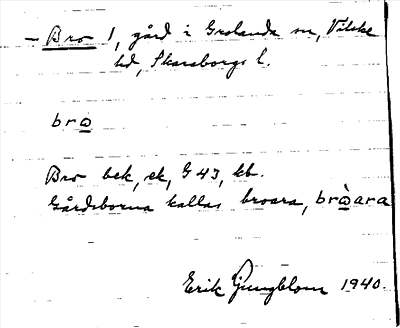 – Bro 1, gård i Grolanda sn, Vilske
hd, Skaraborgs l.
bro
Bro bek, ek, G 43, kb.
Gårdsborna kallas broara, bròara
Erik Ljungblom 1940.